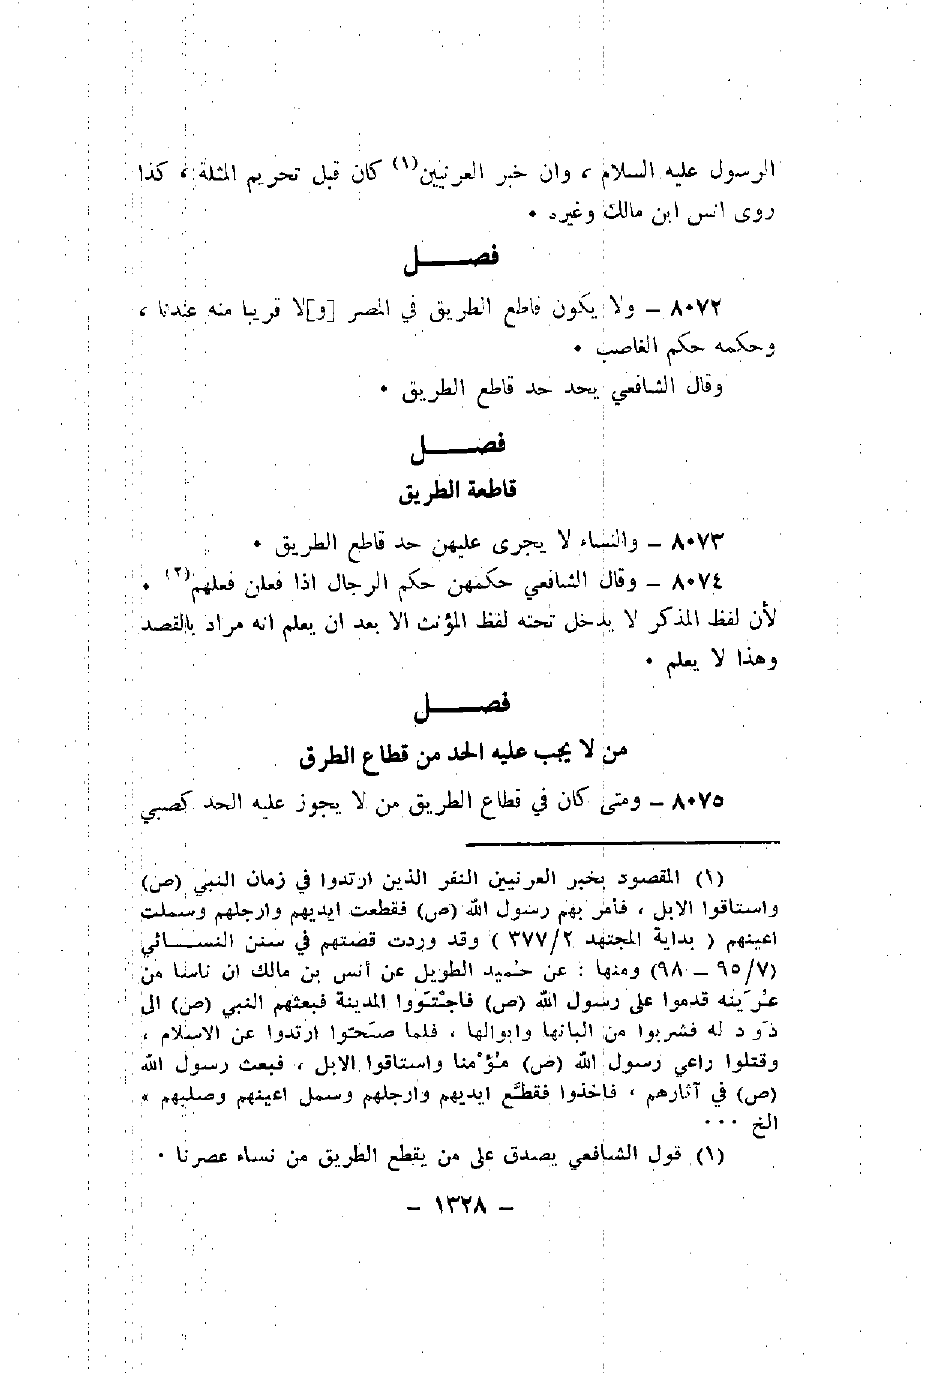 الرسول عليه السلام ، وان خبر العرنيين(١) كان قبل تحريم المثلة ، كذا
روى انس ابن مالك وغيره ٠
فصـــــل
٨٠٧٢ – ولا يكون قاطع الطريق في المصر [و]لا قريبا منه عندنا ،
وحكمه حكم الغاصب ٠
وقال الشافعي يحد حد قاطع الطريق ٠
فصـــــل
قاطعة الطريق
٨٠٧٣ – والنساء لا يجرى عليهن حد قاطع الطريق ٠
٨٠٧٤ – وقال الشافعي حكمهن حكم الرجال اذا فعلن فعلهم(٢) ٠
لأن لفظ المذكر لا يدخل تحته لفظ المؤنث الا بعد ان يعلم انه مراد بالقصد
وهذا لا يعلم ٠
فصـــــل
من لا يجب عليه الحد من قطاع الطرق
٨٠٧٥ – ومتى كان في قطاع الطريق من لا يجوز عليه الحد كصبي
(١) المقصود بخبر العرنيين النفر الذين ارتدوا في زمان النبي (ص)
واستاقوا الابل ، فأمر بهم رسول الله (ص) فقطعت ايديهم وارجلهم وسملت
اعينهم ( بداية المجتهد ٣٧٧/٢ ) وقد وردت قصتهم في سنن النســـائي
(٩٥/٧ – ٩٨) ومنها : عن حُميد الطويل عن أنس بن مالك ان ناسا من
عُرَينه قدموا على رسول الله (ص) فاجْتَوَوا المدينة فبعثهم النبي (ص) الى
ذَوْد له فشربوا من البانها وابوالها ، فلما صَحّوا ارتدوا عن الاسلام ،
وقتلوا راعي رسول الله (ص) مُؤْمنا واستاقوا الابل ، فبعث رسول الله
(ص) في آثارهم ، فاخذوا فقطّع ايديهم وارجلهم وسمل اعينهم وصلبهم »
الخ ٠٠٠
(١) قول الشافعي يصدق على من يقطع الطريق من نساء عصرنا ٠
– ١٣٢٨ –